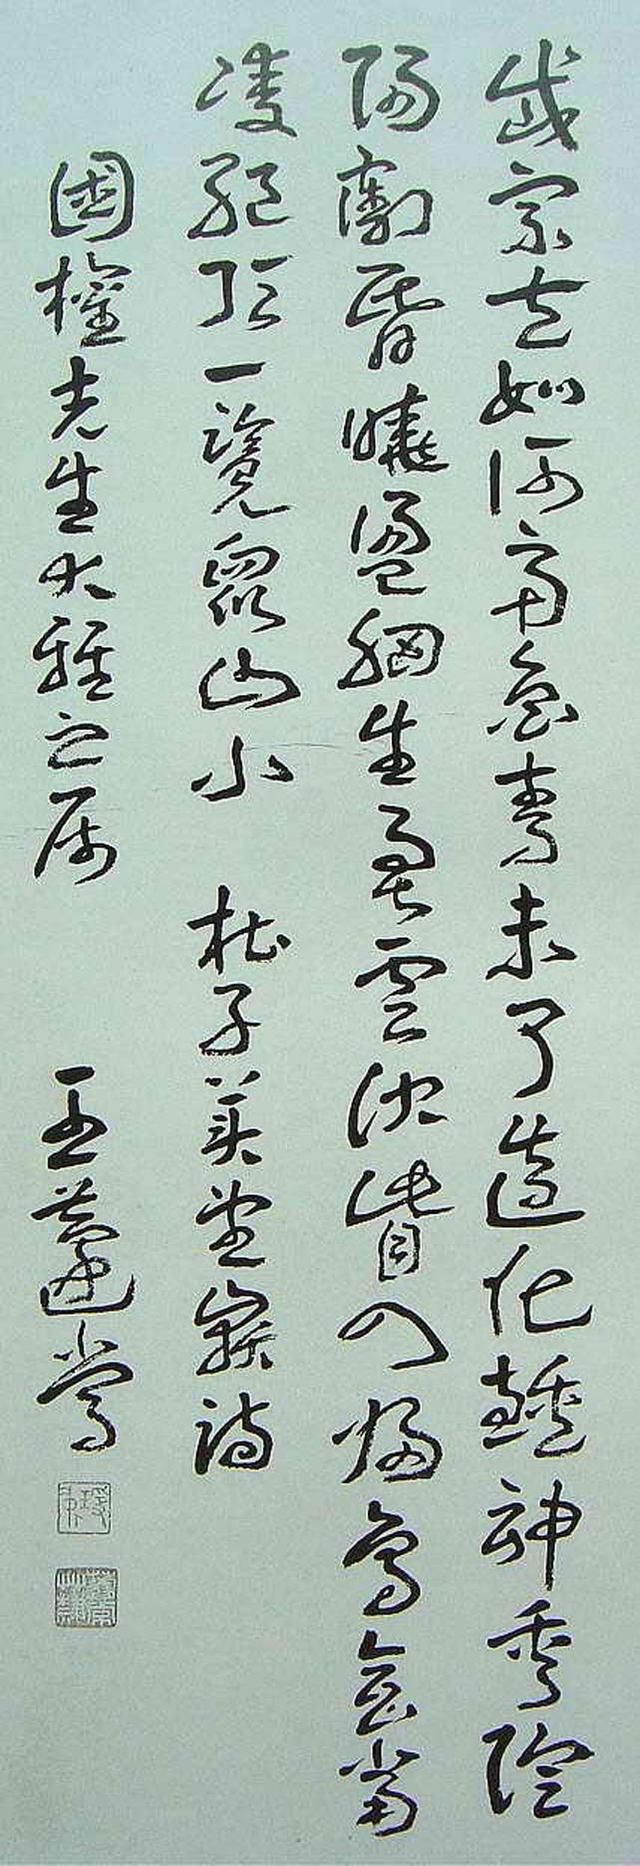 岱宗夫如何齊魯青未了造化鍾神秀陰
陽割昏曉盪胸生層雲決眥入歸鳥會當
凌絕頂一覽眾山小 杜子美望嶽詩
國權先生大雅之屬 王蘧常